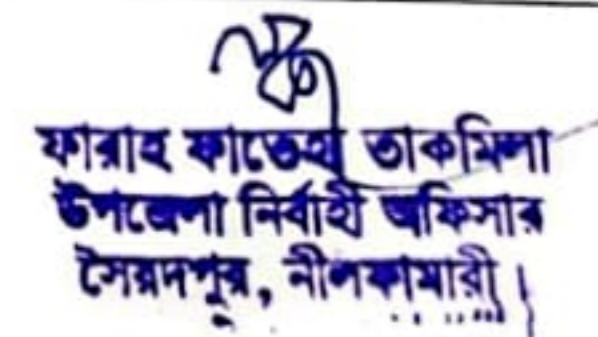 ফারাহ ফাতেহা তাকমিলা
উপজেলা নির্বাহী অফিসার
সৈয়দপুর, নীলফামারী।